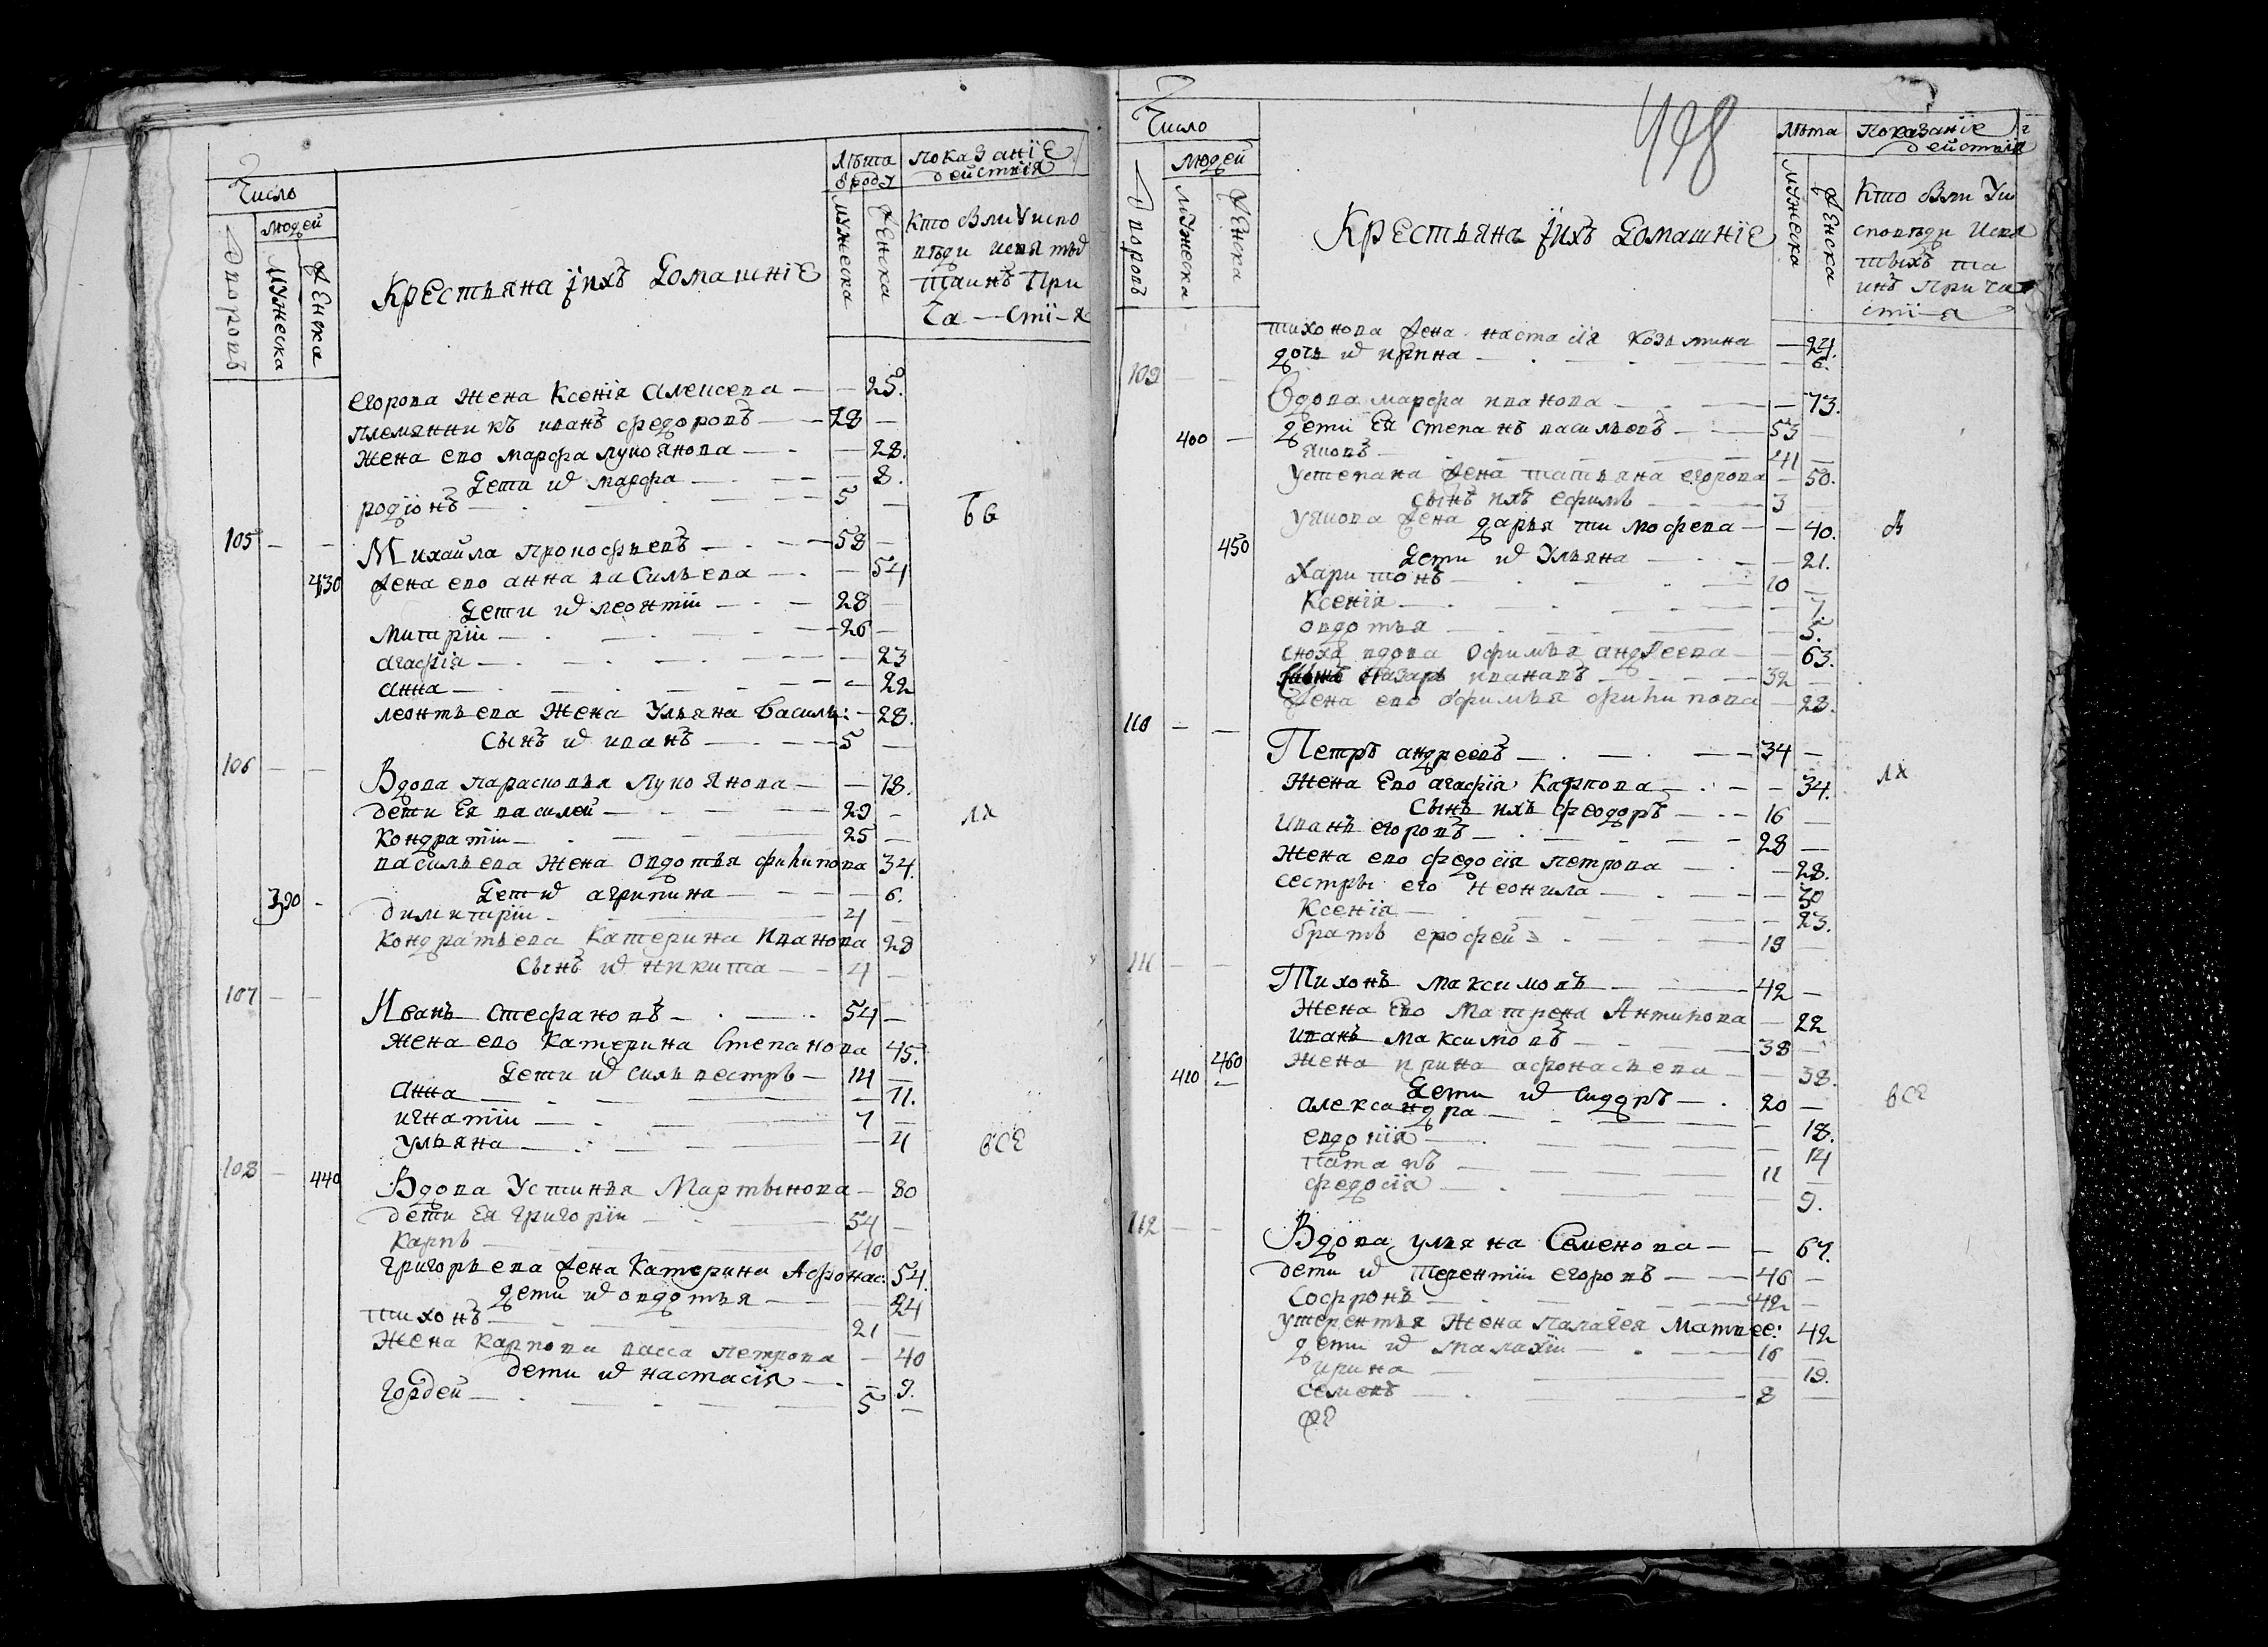 Число
людей
дворовъ
мужеска
женска
Крестьяна ихъ домашнїе
Лѣта
мужеска
женска
показанїе
действїя
Кто был у испо
вѣди
таинъ При
ча — стї — я
егорова жена Ксенїя Алексева — — 25.
племянникъ иванъ федоровъ — 28 —
жена ево марфа лукоянова — — 28.
дети их марфа — — 8.
родїонъ — 5 —
105 — — Михайла Прокофьевъ — 58 —
430 жена ево анна васильева — — 54
дети их леонтїи — 28 —
митрїи — 26 —
агафїя — — 23
анна — — 22
леонтьева жена Ульяна василь: — 28.
сынъ их иванъ — 5 —
106 — — Вдова парасковья лукоянова — — 78.
дети ея василей — 29 —
Кондратїи — 25 —
васильева жена овдотья филипова 34.
390 — дети их агрипина — — 6.
димитрїи — 4 —
Кондратьева Катерина Иванова 28
сынъ их никита — 4 —
107 — — Иванъ стефановъ — 54 —
жена ево Катерина степанова 45.
дети их сильвестръ — 14 —
анна — — 11.
игнатїи — 7 —
ульяна — — 4
все
108 — 440 Вдова Устинья Мартынова — 80
дети ея григорїи — 54 —
карпъ — 40
григорьева жена Катерина Афонас: 54.
дети их овдотья — — 24
тихонъ — 21 —
жена карпова васса петрова — 40
дети их настасїя — — 9.
гордей — 5 —
498
Число
людей
дворовъ
мужеска
женска
Крестьяна ихъ домашнїе
лѣта
мужеска
женска
Показанїе
действїя
Кто был у и
споведи
тыхъ та
инъ прича
стї — я
тихонова жена настасїя козьмина — 24.
дочь их ирина — — 6.
109 — — Вдова марфа иванова — — 73.
400 — дети ея степанъ васильевъ — 53 —
яковъ — 41 —
у степана жена татьяна егорова — 50.
сынъ ихъ ефимъ — 3 —
у якова жена дарья тимофева — — 40.
450 дети их Ульяна — — 21.
харитонъ — 10 —
Ксенїя — — 7.
овдотья — — 5.
сноха вдова офимья андреева — — 63.
назаръ ивановъ — 32 —
жена ево офимья филипова — 28.
110 — — Петръ андреевъ — 34 —
жена ево агафїя Карпова — — 34.
сынъ ихъ феодоръ — 16 —
иванъ егоровъ — 28 —
жена ево федосїя петрова — — 28.
сестры его неонила — — 30
Ксенїя — — 23.
братъ ерофей — 18 —
111 — — Тихонъ максимовъ — 42 —
жена ево Матрена Антипова — 22
иванъ максимовъ — 38 —
410 460 жена ирина афонасьева — — 38.
дети их сидоръ — 20 —
все
александра — — 18.
евдокїя — — 14
патапъ — 11 —
федосїя — — 9.
112 — — Вдова ульяна Семенова — — 67.
дети их терентїи егоровъ — 46 —
софронъ — 42 —
у терентья жена палагея матвее: 42
дети их малахїи — 16 —
ирина — — 19.
семенъ — 8 —